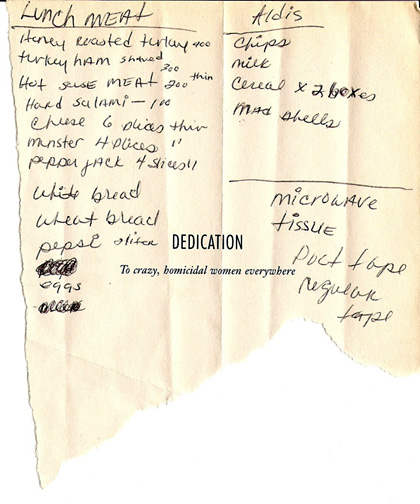 Lunch MEAT
Honey Roasted turkey 400
turkey HAM shaved 300
Hot suse MEAT 200 thin
Hard salami - 100
Cheese 6 slices thin
munster 4 slices "
pepper jack 4 slices "
White bread
wheat bread
pepsi
eggs
Aldis
Chips
milk
Cereal x 2 boxes
mac shells
microwave
tissue
Duct tape
regular
tape
DEDICATION
To crazy, homicidal women everywhere